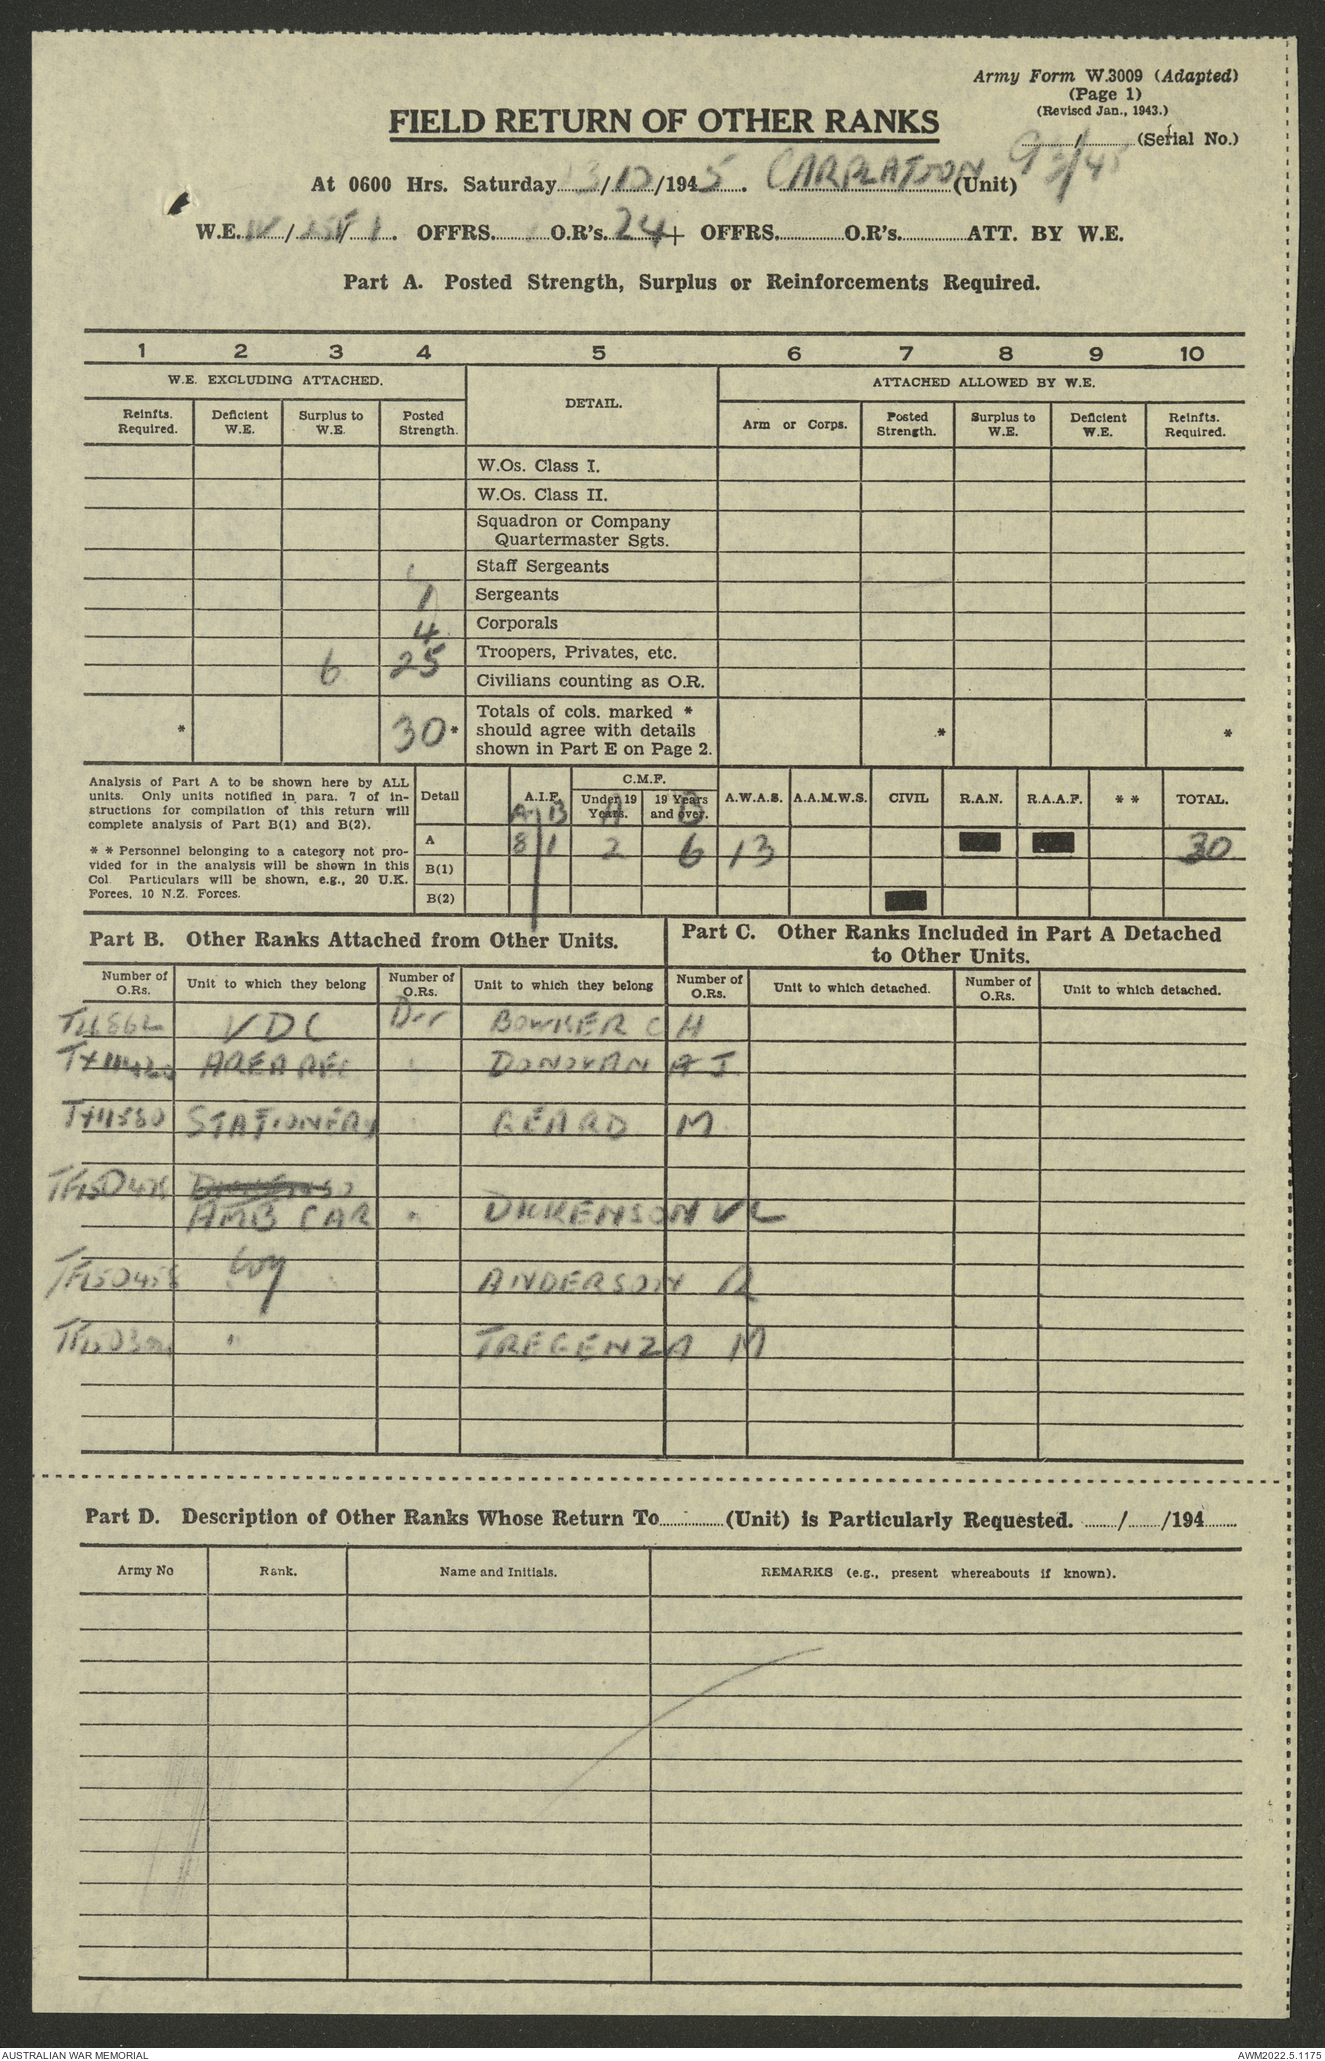 Army Form W.3009 (Adapted)
(Page 1)
(Revised Jan., 1943.)
FIELD RETURN OF OTHER RANKS
/ (Serial No.)
At 0600 Hrs. Saturday 13/10/1945. CARPLATOON (Unit)
W.E. IV / / 1. OFFRS. O.R's. 24 + OFFRS. O.R's. ATT. BY W.E.
Part A. Posted Strength, Surplus or Reinforcements Required.
1 2 3 4 5 6 7 8 9 10
W.E. EXCLUDING ATTACHED. DETAIL. ATTACHED ALLOWED BY W.E.
Reinfts. Required. Deficient W.E. Surplus to W.E. Posted Strength. Arm or Corps. Posted Strength. Surplus to W.E. Deficient W.E. Reinfts. Required.
W.Os. Class I.
W.Os. Class II.
Squadron or Company
Quartermaster Sgts.
Staff Sergeants
1 Sergeants
4 Corporals
6 25 Troopers, Privates, etc.
Civilians counting as O.R.
Totals of cols. marked *
* 30 * should agree with details * *
shown in Part E on Page 2.
Analysis of Part A to be shown here by ALL
units. Only units notified in para. 7 of in-
structions for compilation of this return will
complete analysis of Part B(1) and B(2).
* * Personnel belonging to a category not pro-
vided for in the analysis will be shown in this
Col. Particulars will be shown, e.g., 20 U.K.
Forces, 10 N.Z. Forces.
C.M.F.
Detail A.I.F. Under 19 Years. 19 Years and over. A.W.A.S. A.A.M.W.S. CIVIL R.A.N. R.A.A.F. * * TOTAL.
A B A B
A 8 1 2 6 13 30
B(1)
B(2)
Part B. Other Ranks Attached from Other Units.
Part C. Other Ranks Included in Part A Detached
to Other Units.
Number of O.Rs. Unit to which they belong Number of O.Rs. Unit to which they belong Number of O.Rs. Unit to which detached. Number of O.Rs. Unit to which detached.
VDC Dvr BOWKER C H
AREA REC " DONOVAN A J
TX11580 STATIONERY " GEARD M
AMB CAR " DICKENSON V L
ANDERSON R
" TREGENZA M
Part D. Description of Other Ranks Whose Return To (Unit) is Particularly Requested. / /194
Army No Rank. Name and Initials. REMARKS (e.g., present whereabouts if known).
AUSTRALIAN WAR MEMORIAL
AWM2022.5.1175